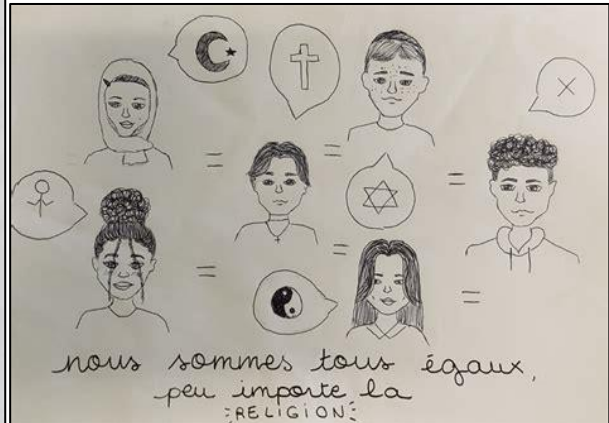 nous sommes tous égaux,
peu importe la
RELIGION